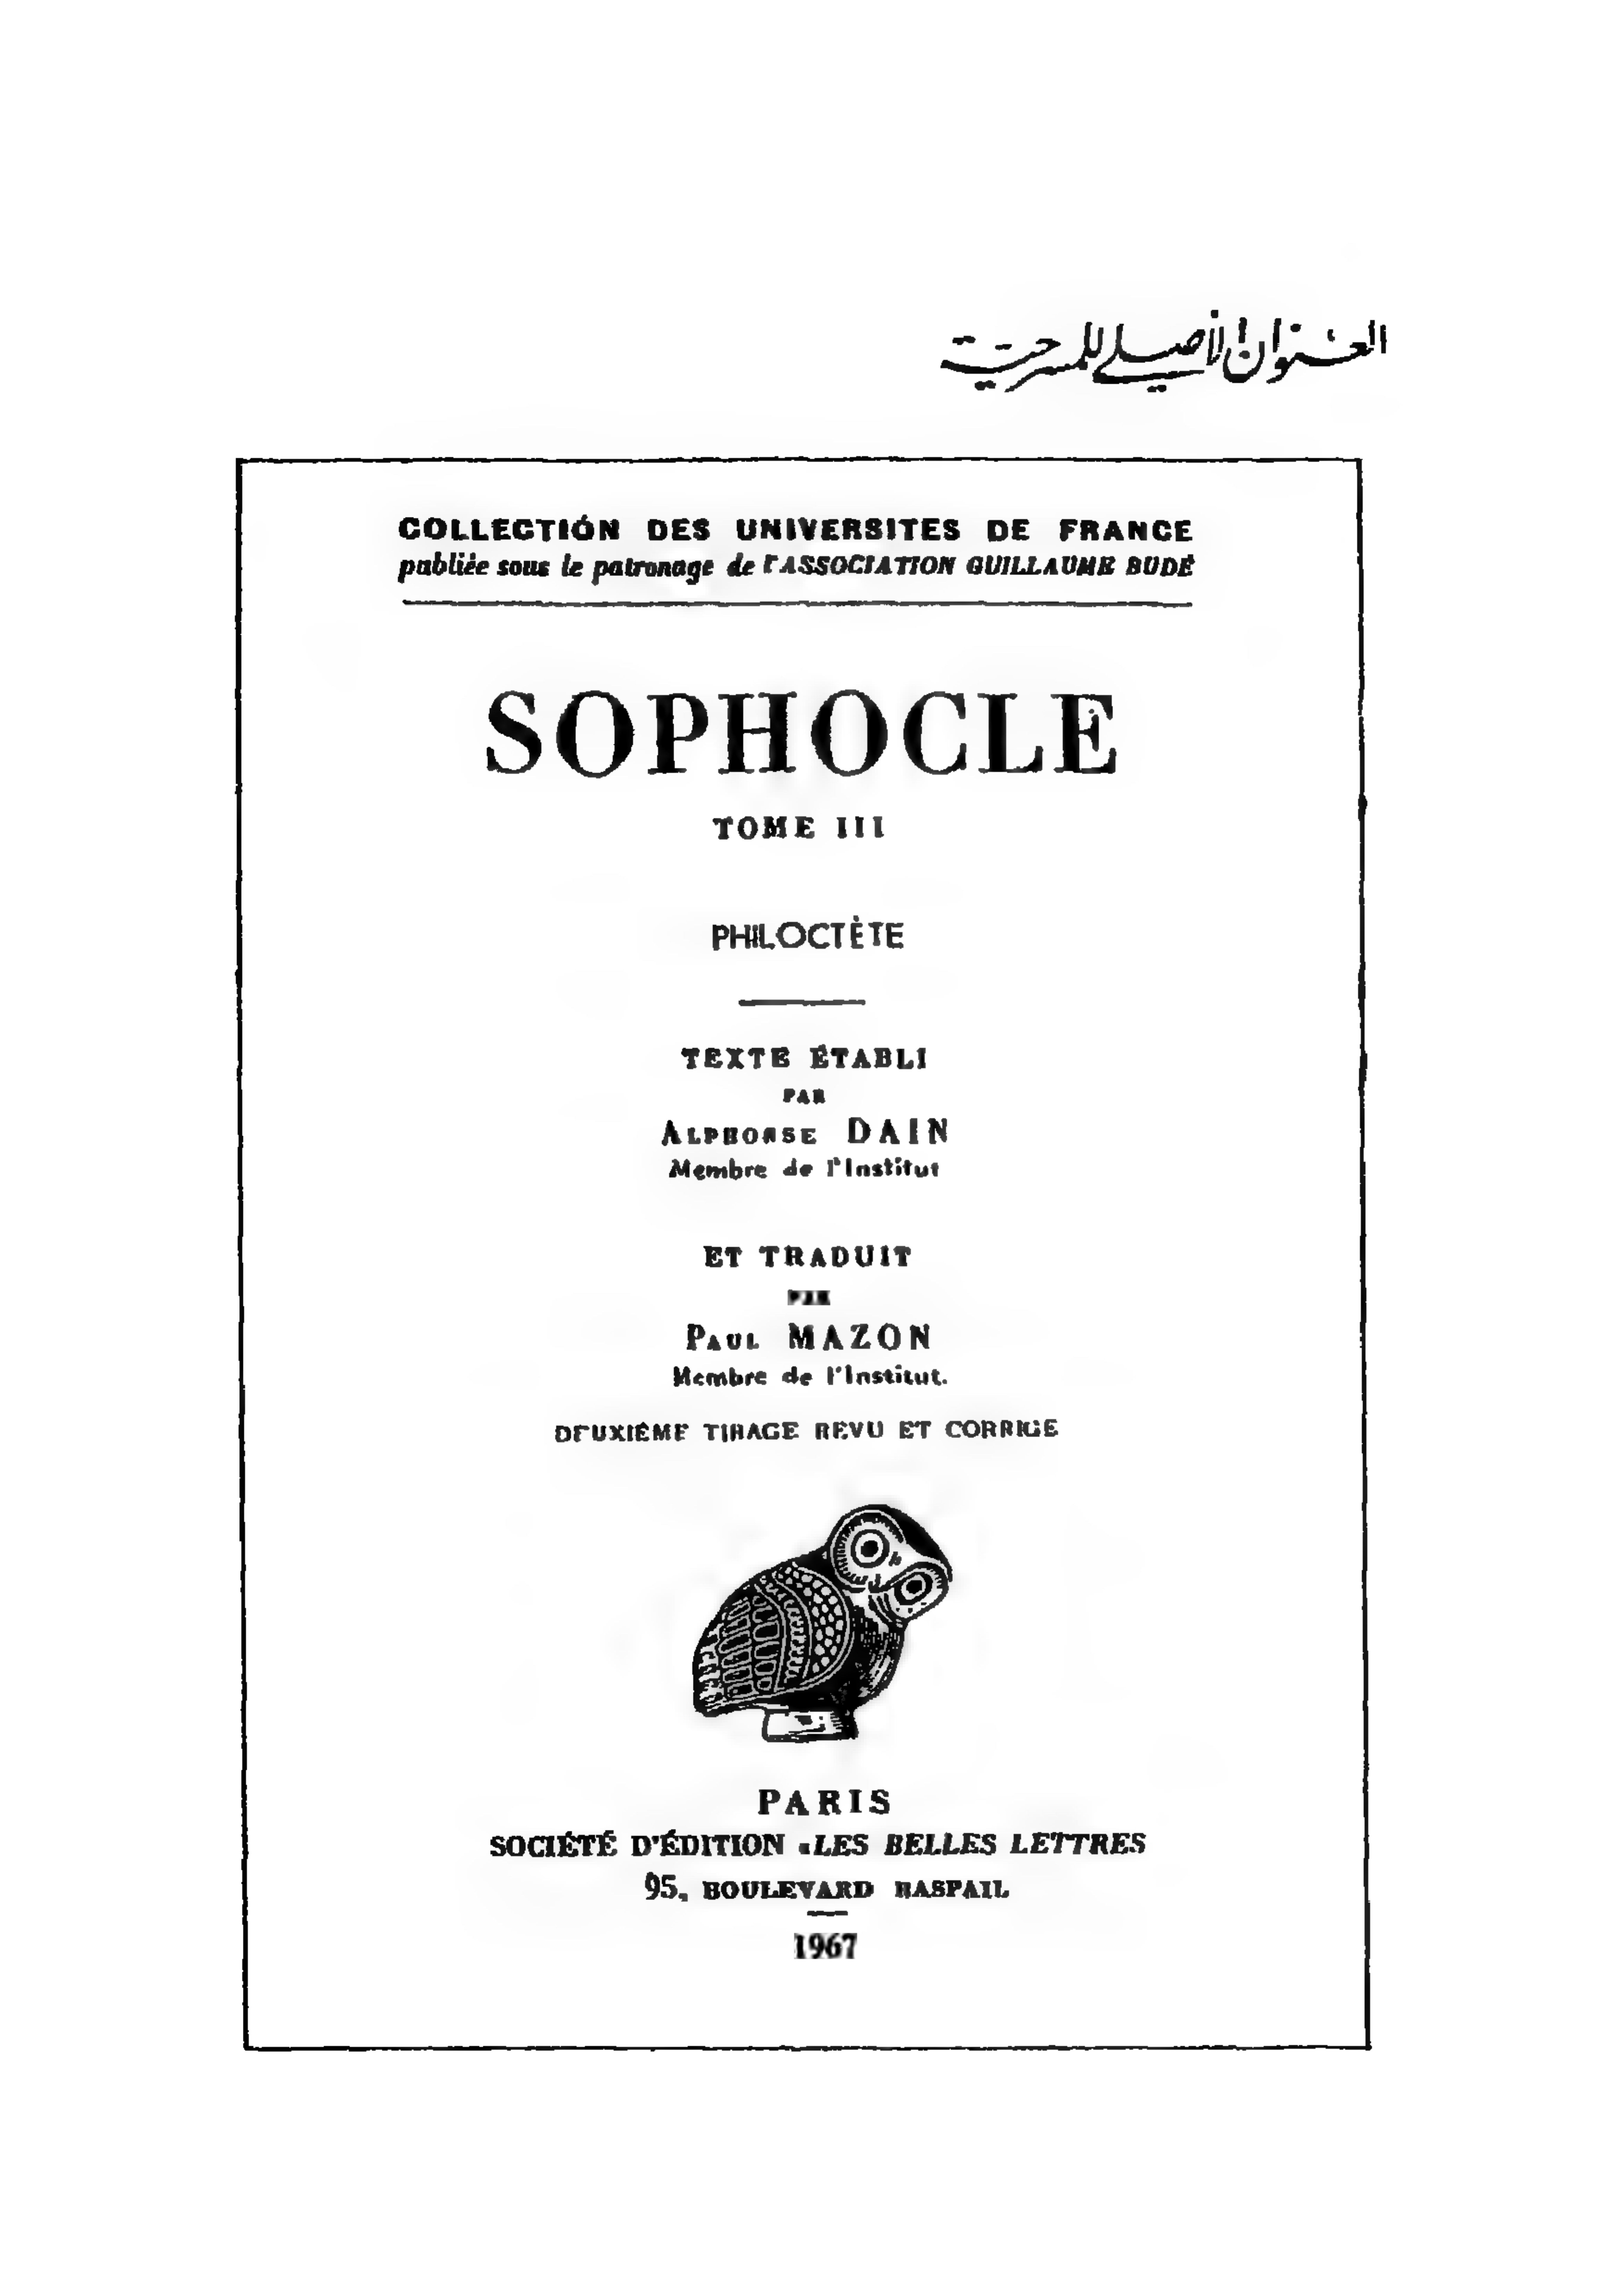 العنوان الأصلي للمسرحية
COLLECTIÓN DES UNIVERSITES DE FRANCE
publiée sous le patronage de l'ASSOCIATION GUILLAUME BUDÉ
SOPHOCLE
TOME III
PHILOCTÈTE
TEXTE ÉTABLI
PAR
ALPHONSE DAIN
Membre de l'Institut
ET TRADUIT
PAR
PAUL MAZON
Membre de l'Institut.
DEUXIÈME TIRAGE REVU ET CORRIGE
PARIS
SOCIÉTÉ D'ÉDITION «LES BELLES LETTRES
95, BOULEVARD RASPAIL
1967